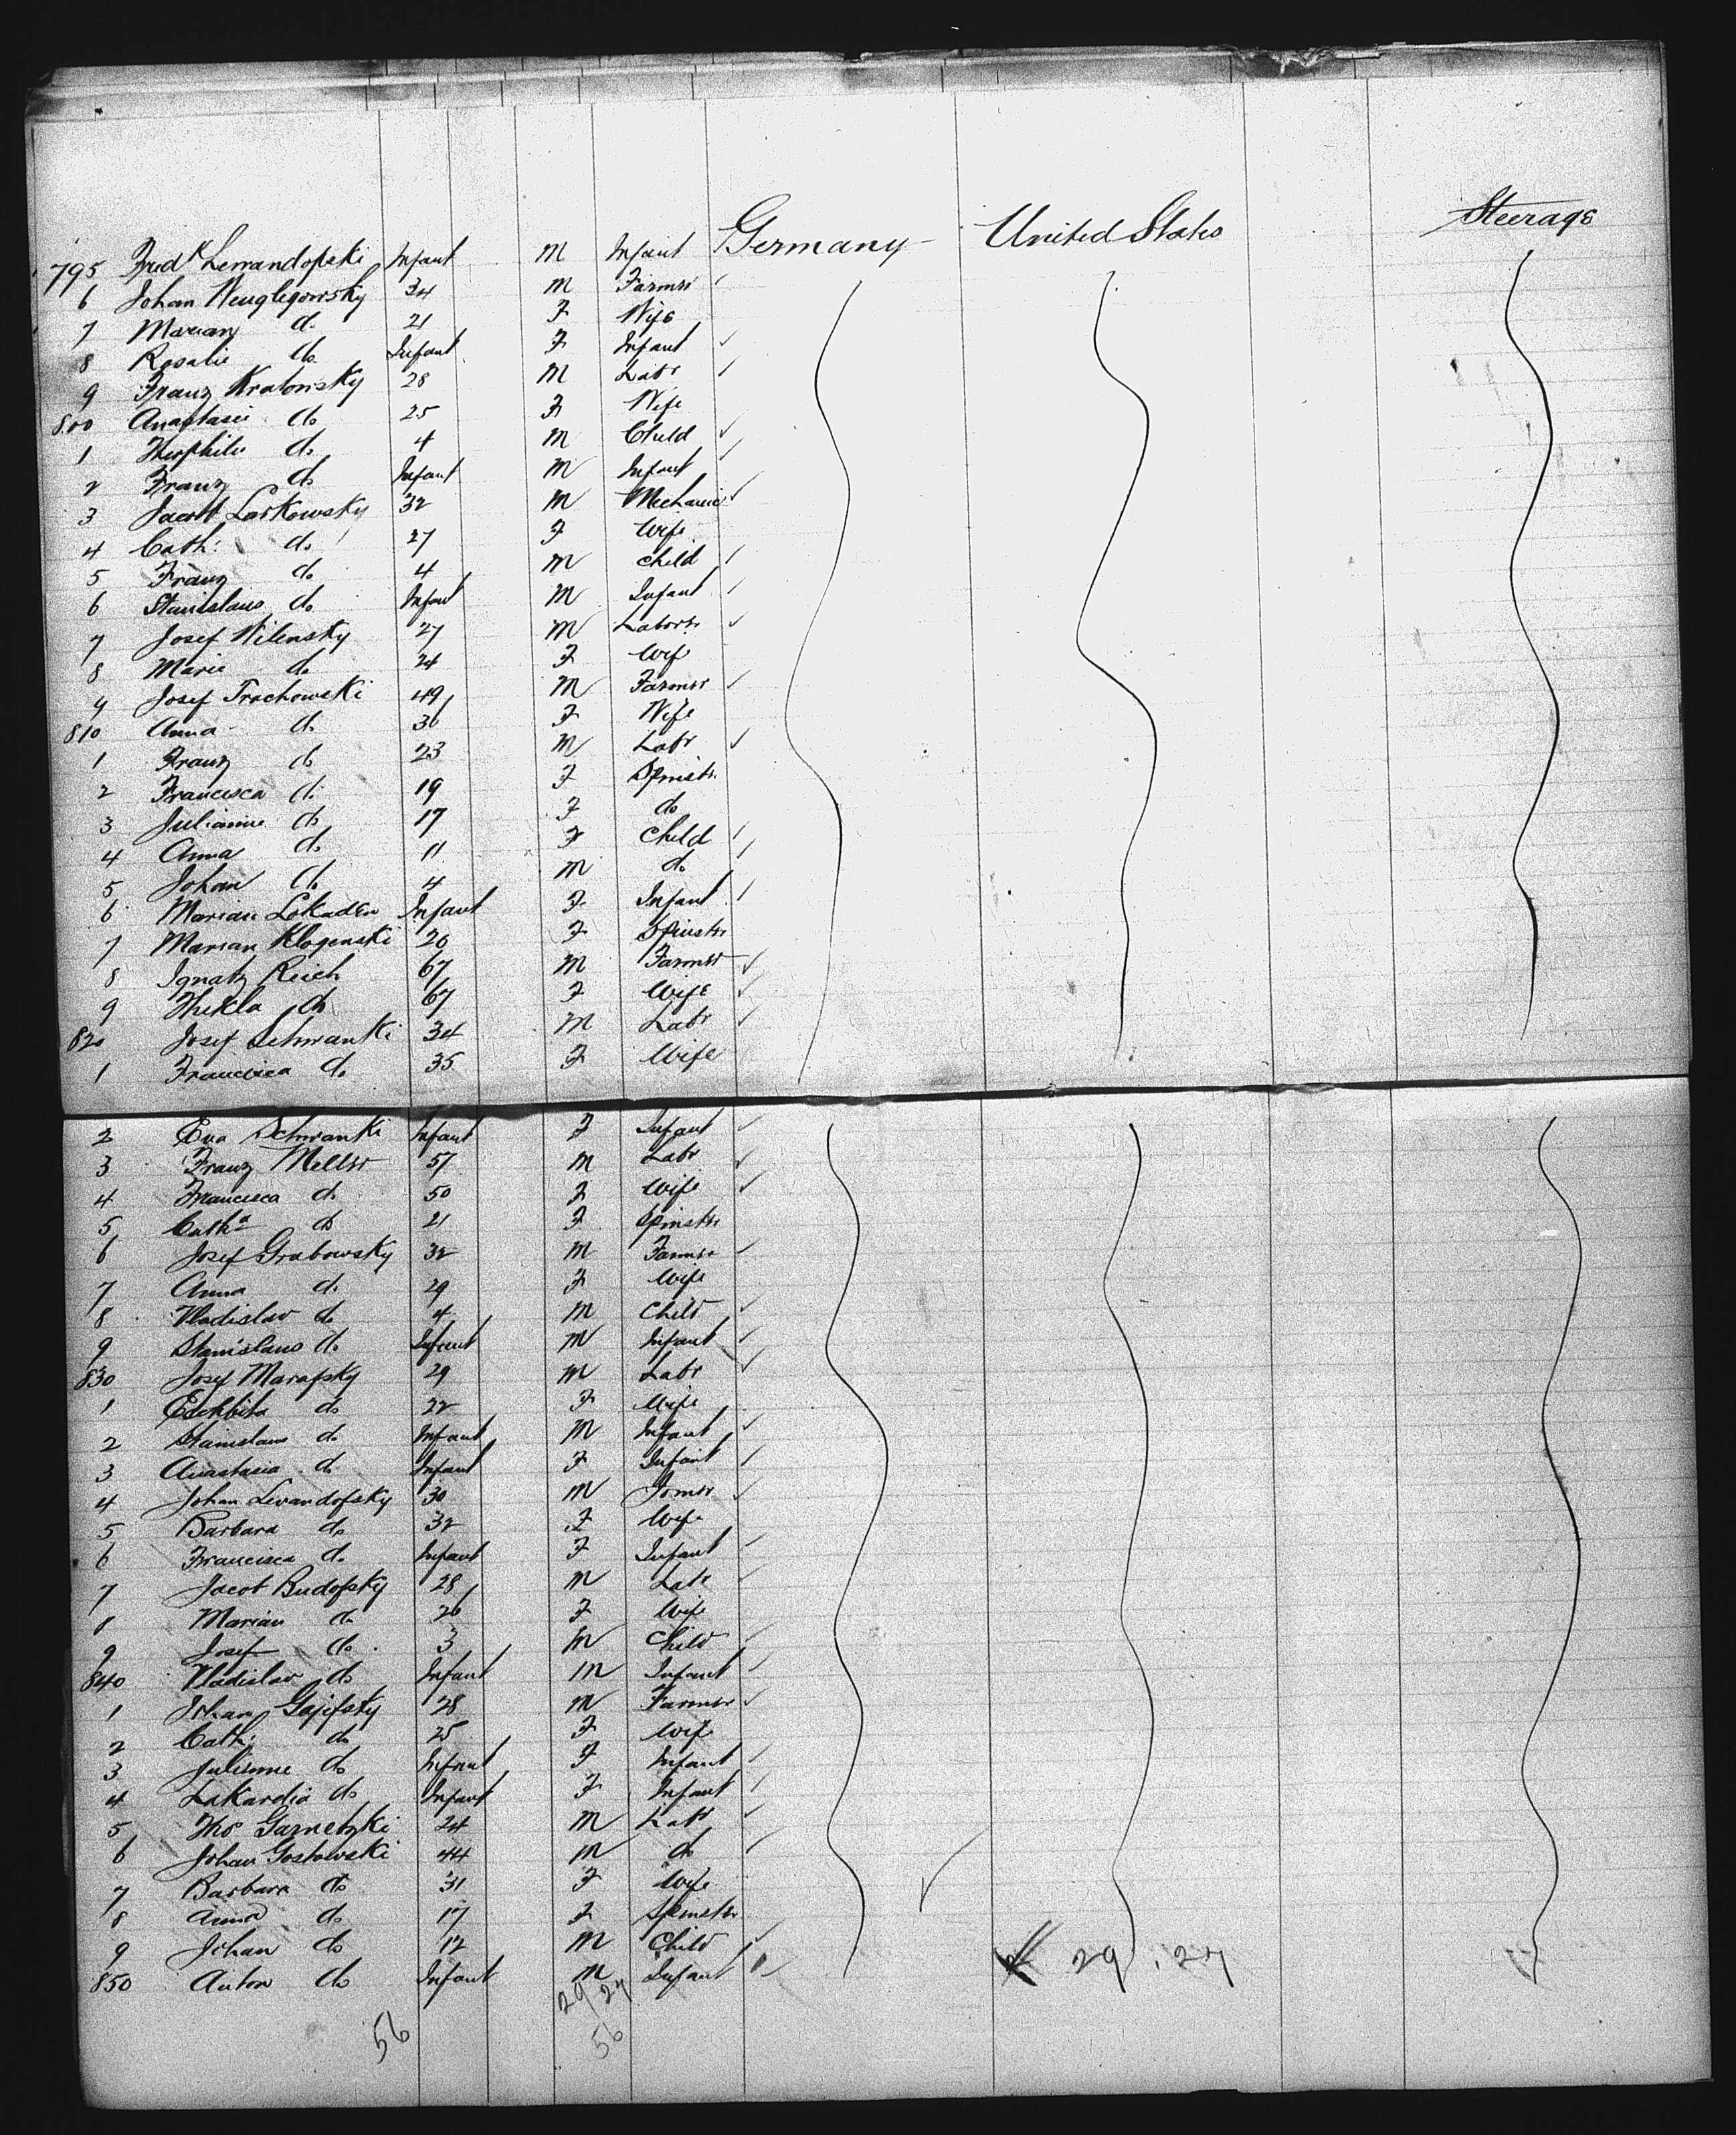 Germany United States Steerage
795 Fredk Lewandofski Infant M Infant
6 Johan Neuglegowsky 34 M Farmer
7 Marian do 21 F Wife
8 Rosalie do Infant F Infant
9 Franz Kratowsky 28 M Labr
800 Anastasie do 25 F Wife
1 Theophile do 4 M Child
2 Franz do Infant M Infant
3 Jacob Laskowsky 32 M Mechanic
4 Cath: do 27 F Wife
5 Franz do 4 M Child
6 Stanislaus do Infant M Infant
7 Josef Wilensky 27 M Laborer
8 Marie do 24 F Wife
9 Josef Trochowski 49 M Farmer
810 Anna do 36 F Wife
1 Franz do 23 M Labr
2 Francisca do 19 F Spinster
3 Julianne do 17 F do
4 Anna do 11 F Child
5 Johan do 4 M do
6 Marian Lokaden Infant F Infant
7 Marian Klogenski 26 F Spinster
8 Ignatz Reich 67 M Farmer
9 Thekla do 67 F Wife
820 Josef Schwanki 34 M Labr
1 Francisca do 35 F Wife
2 Eva Schwanki Infant F Infant
3 Franz Meller 57 M Labr
4 Francisca do 50 F Wife
5 Catha do 21 F Spinster
6 Josef Grabowsky 32 M Farmer
7 Anna do 29 F Wife
8 Vladislav do 4 M Child
9 Stanislaus do Infant M Infant
830 Josef Marafsky 29 M Labr
1 do 22 F Wife
2 Stanislaus do Infant M Infant
3 Anastasia do Infant F Infant
4 Johan Levandofsky 30 M
5 Barbara do 32 F Wife
6 Francisca do Infant F Infant
7 Jacob Budofsky 28 M Labr
8 Marian do 26 F Wife
9 Josef do 3 M Child
840 Vladislav do Infant M Infant
1 Johan Gajefsky 28 M Farmer
2 Cath: do 25 F Wife
3 Julianne do Infant F Infant
4 Lakardia do Infant F Infant
5 Thos Garnetzki 24 M Labr
6 Johan Gostowski 44 M do
7 Barbara do 31 F Wife
8 Anna do 17 F Spinster
9 Johan do 12 M Child
850 Anton do Infant M Infant
29 . 27
29 27
56 56